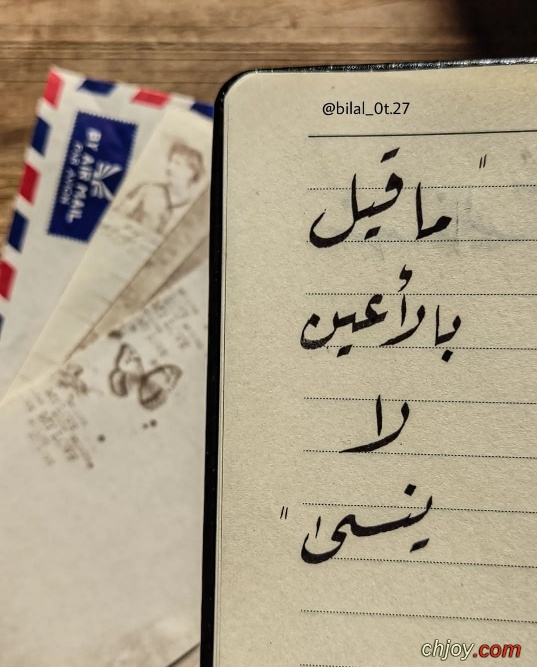 @bilal_0t.27
"ما قيل
بالأعين
لا
ينسى"
BY AIR MAIL
PAR AVION
chjoy.com